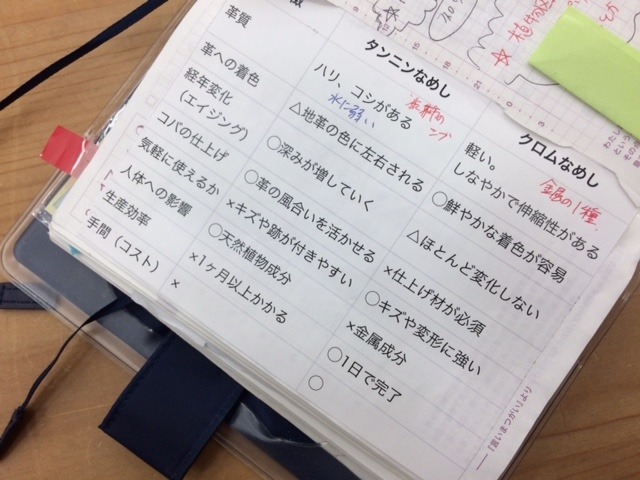 徴
タンニンなめし
クロムなめし
革質
ハリ、コシがある
水に弱い
軽い。
しなやかで伸縮性がある
金属の1種
革への着色
△地革の色に左右される
○鮮やかな着色が容易
経年変化
（エイジング）
○深みが増していく
△ほとんど変化しない
コバの仕上げ
○革の風合いを活かせる
×仕上げ材が必須
気軽に使えるか
×キズや跡が付きやすい
○キズや変形に強い
人体への影響
○天然植物成分
×金属成分
生産効率
×1ヶ月以上かかる
○1日で完了
手間（コスト）
×
○
―『言いまつがい』より